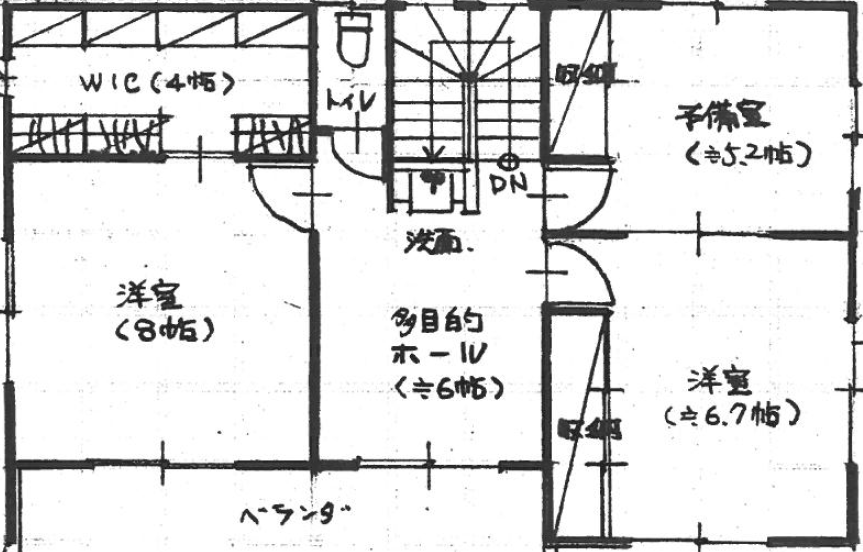 WIC(4帖)
トイレ
収納
予備室
(≒5.2帖)
DN
洗面
洋室
(8帖)
多目的
ホール
(≒6帖)
洋室
(≒6.7帖)
収納
ベランダ